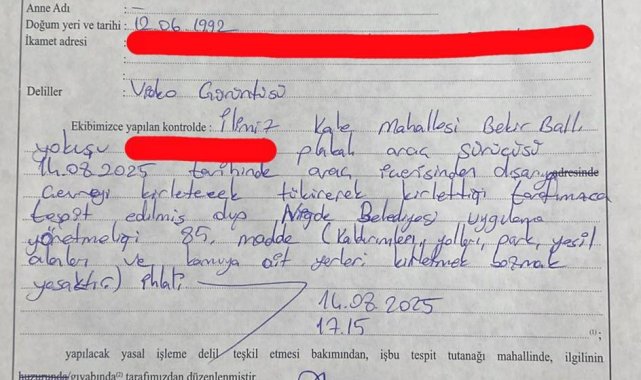 Anne Adı : —
Doğum yeri ve tarihi : 12.06.1992
İkamet adresi :
Deliller : Video Görüntüsü
Ekibimizce yapılan kontrolde : İlimiz Kale Mahallesi Bekir Ballı
yokuşu plakalı araç sürücüsü
14.08.2025 tarihinde araç içerisinden dışarıya adresinde
Çevreyi kirletecek tükürerek kirlettiği tarafımızca
tespit edilmiş olup Niğde Belediyesi uygulama
yönetmeliği 35. madde (Kaldırımları, yolları, park, yeşil
alanları ve kamuya ait yerleri kirletmek bozmak
yasaktır.) ihlali
14.08.2025
17.15 (1);
yapılacak yasal işleme delil teşkil etmesi bakımından, işbu tespit tutanağı mahallinde, ilgilinin
huzurunda/gıyabında(2) tarafımızdan düzenlenmiştir.